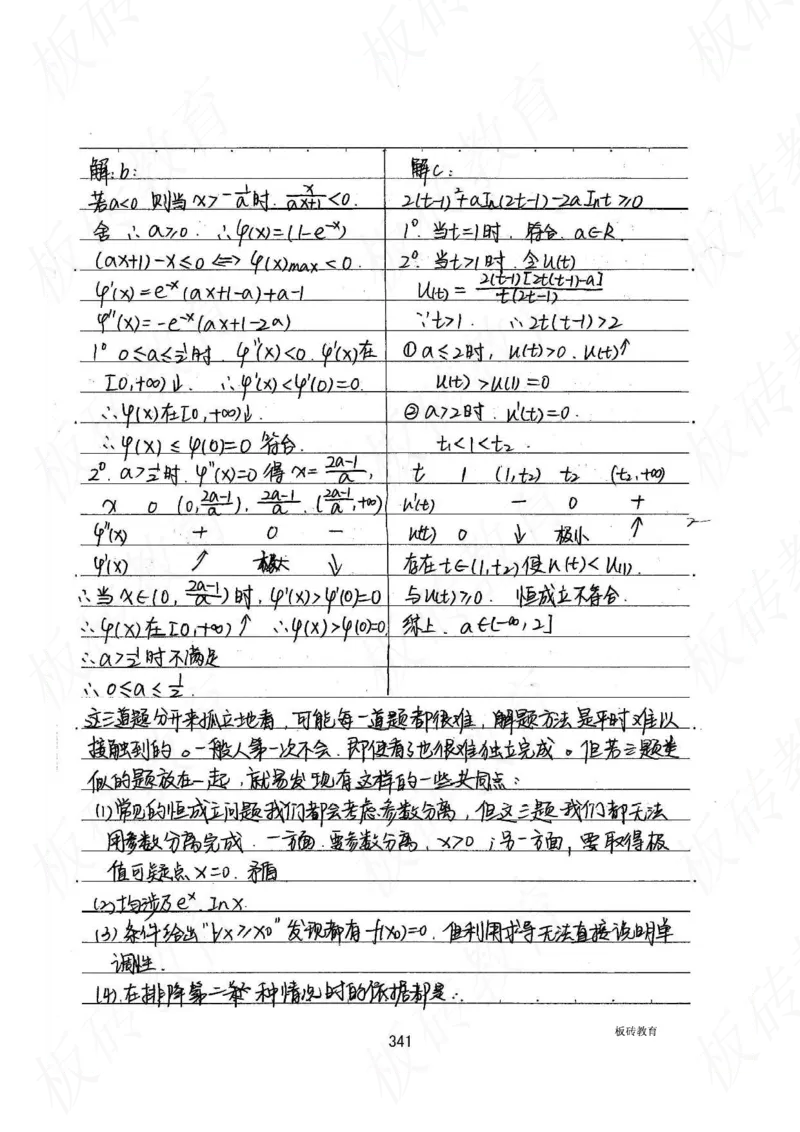 解:b:
若a<0 则当 x>-1/a 时. x/(ax+1)<0.
舍 ∴ a≥0. ∴φ(x)=(1-e^-x)
(ax+1)-x≤0 ⟺ φ(x)max<0.
φ'(x)=e^-x(ax+1-a)+a-1
φ''(x)=-e^-x(ax+1-2a)
1° 0≤a≤1/2时. φ''(x)<0. φ'(x)在
[0,+∞)↓. ∴φ'(x)<φ'(0)=0.
∴φ(x)在[0,+∞)↓.
∴φ(x)≤φ(0)=0 符合.
2°. a>1/2时. φ''(x)=0 得 x=(2a-1)/a,
x 0 (0,(2a-1)/a). (2a-1)/a. ((2a-1)/a,+∞)
φ''(x) + 0 −
φ'(x) ↗ 极大 ↓
∴当 x∈(0,(2a-1)/a)时, φ'(x)>φ'(0)=0
∴φ(x)在[0,+∞)↑ ∴φ(x)>φ(0)=0
∴a>1/2时不满足
∴0≤a≤1/2.
解c:
2(t-1)²+aln(2t-1)-2alnt≥0
1°. 当t=1时. 符合. a∈R.
2°. 当t>1时. 令u(t)
u(t)=2(t-1)[2t(t-1)-a]/t(2t-1)
∵t>1. ∴2t(t-1)>2
①a≤2时, u(t)>0. u(t)↑
u(t)>u(1)=0
②a>2时. u'(t)=0.
t₁<1<t₂.
t 1 (1,t₂) t₂ (t₂,+∞)
u'(t) − 0 +
u(t) 0 ↓ 极小 ↑
存在t∈(1,t₂)使u(t)<u(1).
与u(t)≥0. 恒成立不符合.
综上. a∈(-∞,2]
这三道题分开来孤立地看,可能每一道题都很难,解题方法是平时难以
接触到的。一般人第一次不会.即便看了也很难独立完成。但若三题类
似的题放在一起,就易发现有这样的一些共同点:
(1)常见的恒成立问题我们都会考虑参数分离,但这三题我们都无法
用参数分离完成.一方面.要参数分离、x>0;另一方面,要取得极
值可疑点x=0.矛盾
(2)均涉及e^x.lnx.
(3)条件给出“∀x≥x0”发现都有f(x0)=0.但利用求导无法直接说明单
调性.
(4).在排除第二种情况时的依据都是:
341
板砖教育